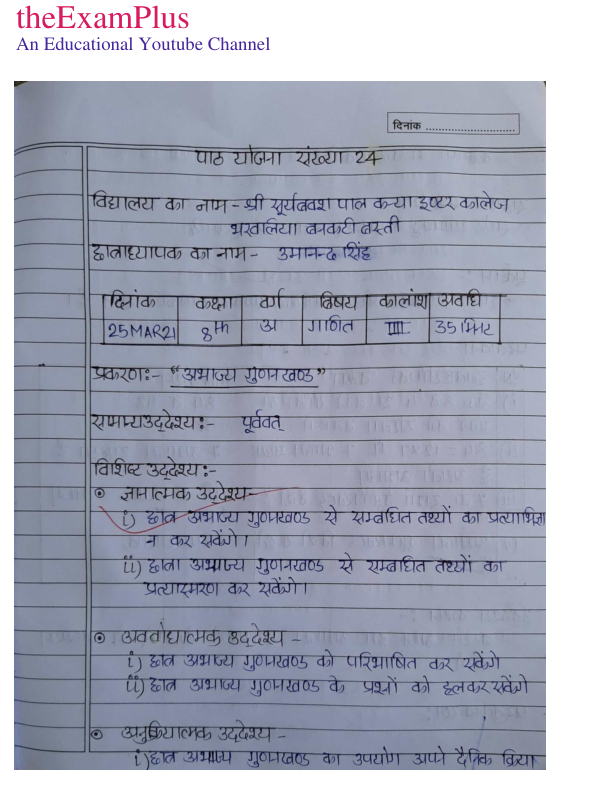 theExamPlus
An Educational Youtube Channel
दिनांक ..............................
पाठ योजना संख्या 24
विद्यालय का नाम - श्री सूर्यबक्श पाल कन्या इण्टर कालेज
बनकटी बस्ती
छात्राध्यापक का नाम - उमानन्द सिंह
दिनांक कक्षा वर्ग विषय कालांश अवधि
25MAR21 8th अ गणित III 35 मिनट
प्रकरण:- "अभाज्य गुणनखण्ड"
सामान्यउद्देश्य:- पूर्ववत्
विशिष्ट उद्देश्य:-
⊙ ज्ञानात्मक उद्देश्य-
i) छात्र अभाज्य गुणनखण्ड से सम्बंधित तथ्यों का प्रत्याभिज्ञा
न कर सकेंगे।
ii) छात्र अभाज्य गुणनखण्ड से सम्बंधित तथ्यों का
प्रत्यास्मरण कर सकेंगे।
⊙ अवबोधात्मक उद्देश्य -
i) छात्र अभाज्य गुणनखण्ड को परिभाषित कर सकेंगे
ii) छात्र अभाज्य गुणनखण्ड के प्रश्नों को हल कर सकेंगे
⊙ अनुक्रियात्मक उद्देश्य -
i) छात्र अभाज्य गुणनखण्ड का उपयोग अपने दैनिक क्रिया